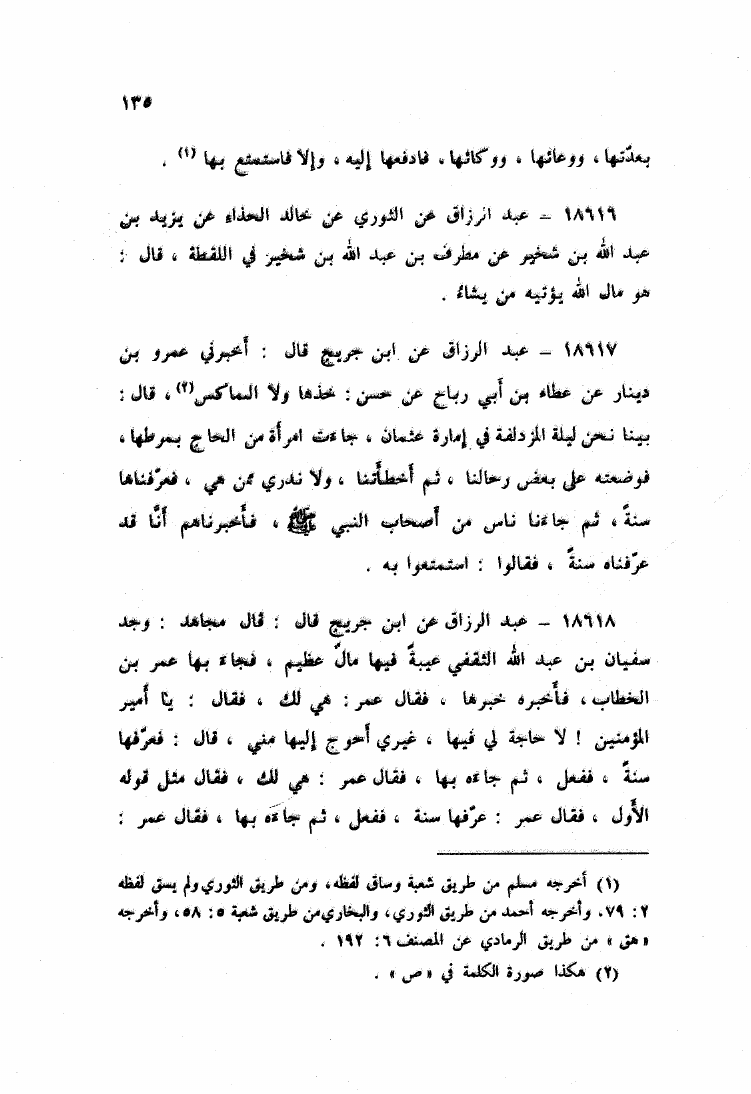 ١٣٥
بعدّتها ، ووعائها ، ووكائها ، فادفعها إليه ، وإلا فاستمتع بها (١) .
١٨٦١٦ – عبد الرزاق عن الثوري عن خالد الحذاء عن يزيد بن
عبد الله بن شخير عن مطرف بن عبد الله بن شخير في اللقطة ، قال :
هو مال الله يؤتيه من يشاءُ .
١٨٦١٧ – عبد الرزاق عن ابن جريج قال : أخبرني عمرو بن
دينار عن عطاء بن أبي رباح عن حسن : خذها ولا الماكس(٢) ، قال :
بينا نحن ليلة المزدلفة في إمارة عثمان ، جاءَت امرأة من الحاج بمرطها ،
فوضعته على بعض رحالنا ، ثم أخطأتنا ، ولا ندري ممن هي ، فعرّفناها
سنةً ، ثم جاءَنا ناس من أصحاب النبي ﷺ ، فأخبرناهم أنَّا قد
عرّفناه سنةً ، فقالوا : استمتعوا به .
١٨٦١٨ – عبد الرزاق عن ابن جريج قال : قال مجاهد : وجد
سفيان بن عبد الله الثقفي عيبةً فيها مالٌ عظيم ، فجاءَ بها عمر بن
الخطاب ، فأخبره خبرها ، فقال عمر : هي لك ، فقال : يا أمير
المؤمنين ! لا حاجة لي فيها ، غيري أحوج إليها مني ، قال : فعرّفها
سنةً ، ففعل ، ثم جاءَه بها ، فقال عمر : هي لك ، فقال مثل قوله
الأول ، فقال عمر : عرّفها سنة ، ففعل ، ثم جاءَه بها ، فقال عمر :
(١) أخرجه مسلم من طريق شعبة وساق لفظه، ومن طريق الثوري ولم يسق لفظه
٢ : ٧٩. وأخرجه أحمد من طريق الثوري، والبخاري من طريق شعبة ٥ : ٥٨، وأخرجه
« هق » من طريق الرمادي عن المصنف ٦ : ١٩٢ .
(٢) هكذا صورة الكلمة في « ص » .